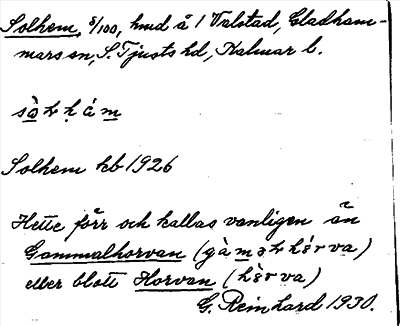 Solhem, 8/100, hmd å 1 Valstad, Gladham-
mars sn, S. Tjusts hd, Kalmar l.
Solhem kb 1926
Hette förr och kallas vanligen än
Gammalhorvan
eller blott Horvan
G. Reinhard 1930.